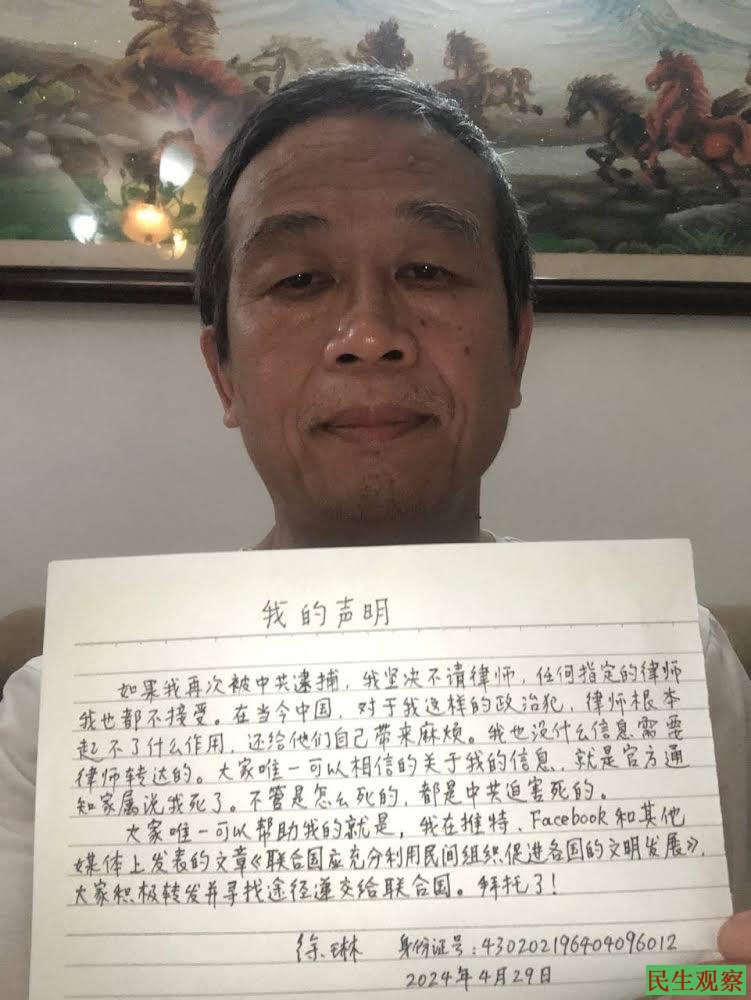 我的声明
如果我再次被中共逮捕，我坚决不请律师，任何指定的律师
我也都不接受。在当今中国，对于我这样的政治犯，律师根本
起不了什么作用，还给他们自己带来麻烦。我也没什么信息需要
律师转达的。大家唯一可以相信的关于我的信息，就是官方通
知家属说我死了。不管是怎么死的，都是中共迫害死的。
大家唯一可以帮助我的就是，我在推特、Facebook和其他
媒体上发表的文章《联合国应充分利用民间组织促进各国的文明发展》，
大家积极转发并寻找途径递交给联合国。拜托了！
徐琳 身份证号：430202196404096012
2024年4月29日
民生观察